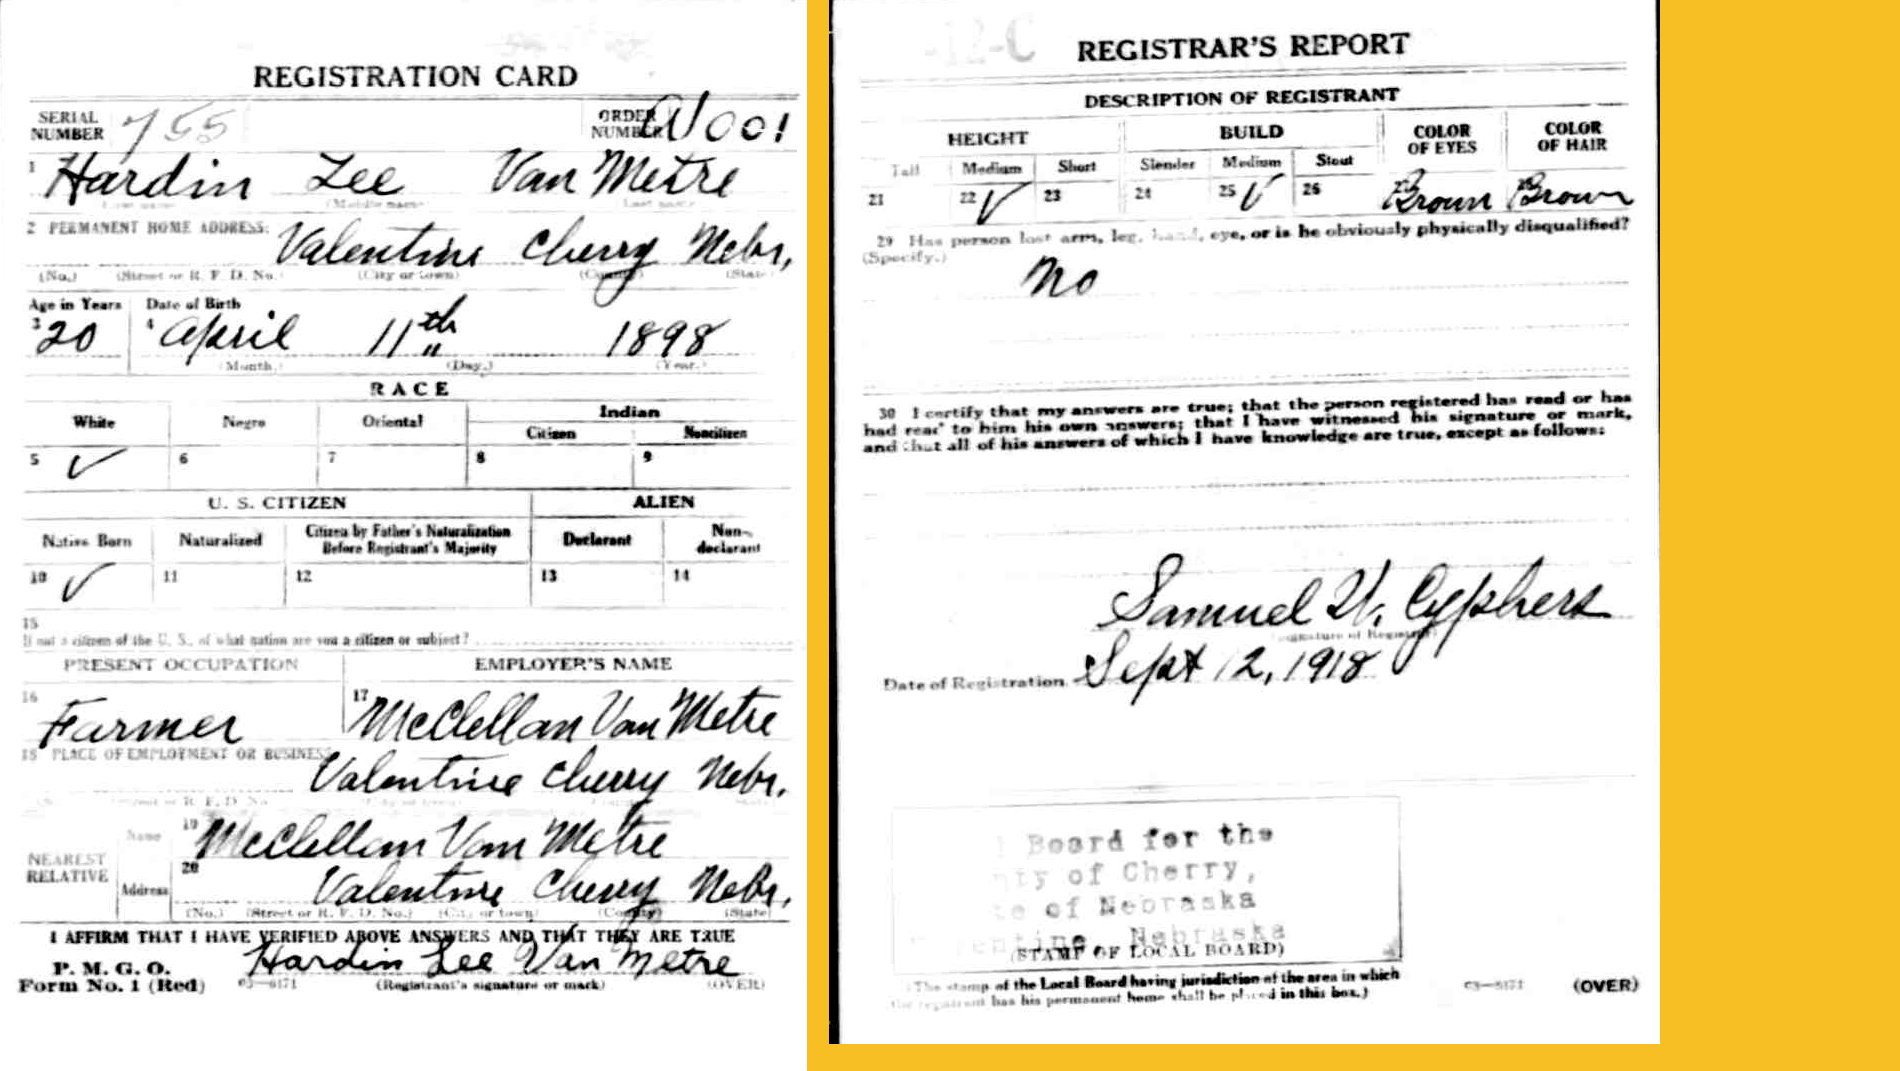 REGISTRATION CARD
SERIAL NUMBER 755 ORDER NUMBER A1001
1 Hardin Lee Van Metre
(First name) (Middle name) (Last name)
2 PERMANENT HOME ADDRESS:
Valentine Cherry Nebr,
(No.) (Street or R. F. D. No.) (City or town) (County) (State)
Age in Years Date of Birth
3 20 4 April 11th 1898
(Month.) (Day.) (Year.)
RACE
White Negro Oriental Indian
Citizen Noncitizen
5 ✓ 6 7 8 9
U. S. CITIZEN ALIEN
Native Born Naturalized Citizen by Father's Naturalization Before Registrant's Majority Declarant Non-declarant
10 ✓ 11 12 13 14
15
If not a citizen of the U. S., of what nation are you a citizen or subject?
PRESENT OCCUPATION EMPLOYER'S NAME
16 Farmer 17 McClellan Van Metre
18 PLACE OF EMPLOYMENT OR BUSINESS
Valentine Cherry Nebr.
R. F. D. No
NEAREST RELATIVE Name 19 McClellan Van Metre
Address 20 Valentine Cherry Nebr,
(No.) (Street or R. F. D. No.) (City or town) (County) (State)
I AFFIRM THAT I HAVE VERIFIED ABOVE ANSWERS AND THAT THEY ARE TRUE
P. M. G. O.
Form No. 1 (Red) Hardin Lee Van Metre
03—6171 (Registrant's signature or mark) (OVER)
-12-C
REGISTRAR'S REPORT
DESCRIPTION OF REGISTRANT
HEIGHT BUILD COLOR OF EYES COLOR OF HAIR
Tall Medium Short Slender Medium Stout
21 22 ✓ 23 24 25 ✓ 26 27 Brown 28 Brown
29 Has person lost arm, leg, hand, eye, or is he obviously physically disqualified?
(Specify.)
No
30 I certify that my answers are true; that the person registered has read or has
had read to him his own answers; that I have witnessed his signature or mark,
and that all of his answers of which I have knowledge are true, except as follows:
Samuel W. Cyphers
(Signature of Registrar)
Date of Registration Sept 12, 1918
Board for the
ty of Cherry,
te of Nebraska
entine, Nebraska
(STAMP OF LOCAL BOARD)
(The stamp of the Local Board having jurisdiction of the area in which
the registrant has his permanent home shall be placed in this box.)
03—6171 (OVER)